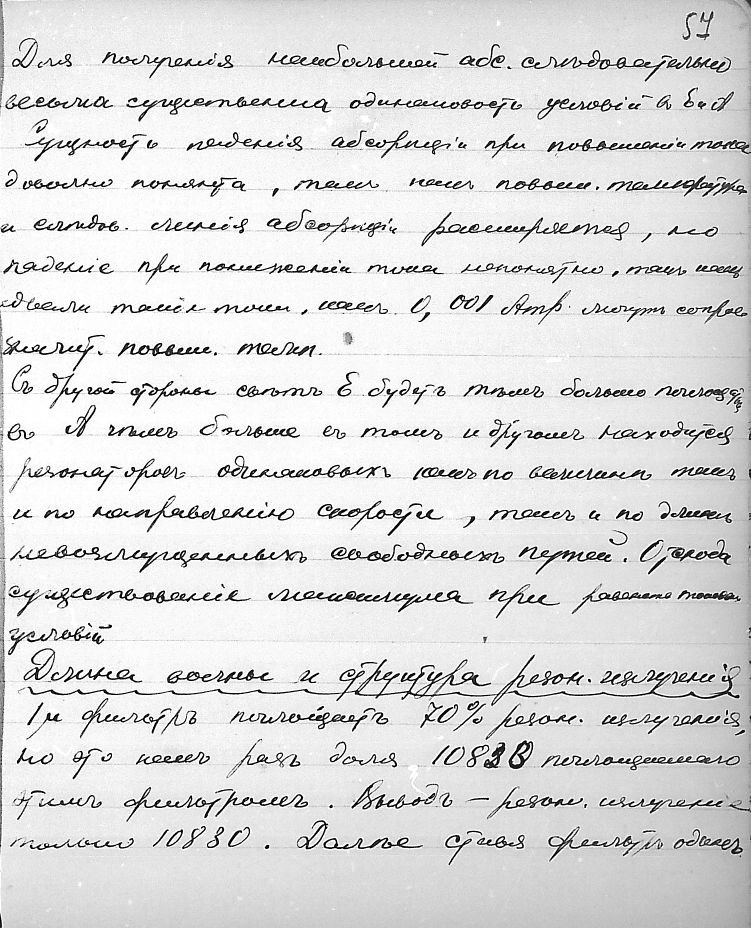 57
Для полученія наибольшей абс. слѣдовательно
весьма существенна одинаковость условій в Б и А
Сущность паденія абсорпціи при повышеніи тока
довольно понятна, такъ какъ повыш. температура
и слѣдов. линія абсорпціи расширяется, но
паденіе при пониженіи тока непонятно, такъ какъ
едвали такіе токи, какъ 0,001 Amp. могутъ
значит. повыш. темп.
Съ другой стороны свѣтъ Б будетъ тѣмъ больше поглощаться
въ А чѣмъ больше въ томъ и другомъ находится
резонаторовъ одинаковыхъ какъ по величинѣ такъ
и по направленію скорости, такъ и по длинѣ
невозмущенныхъ свободныхъ путей. Отсюда
существованіе максимума при равенствѣ токовыхъ
условій
Длина волны и структура резон. излученія
1й фильтръ поглощаетъ 70% резон. излученія,
но это какъ разъ доля 10830 поглощаемаго
этимъ фильтромъ. Выводъ – резон. излученіе
только 10830. Далѣе ставя фильтръ одинъ